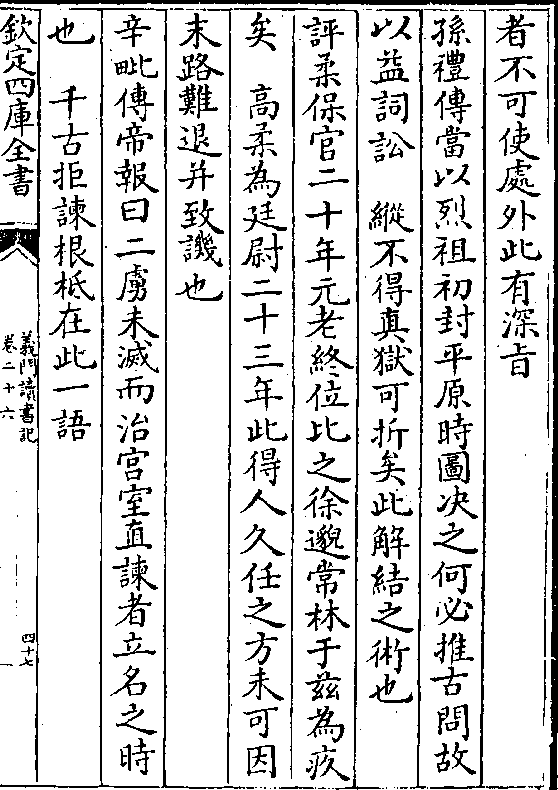 者不可使處外此有深㫖
孫禮傳當以烈祖初封平原時圖決之何必推古問故
以益詞訟　縱不得真獄可折矣此解結之術也
評柔保官二十年元老終位比之徐邈常林于兹為疚
矣　高柔為廷尉二十三年此得人久任之方未可因
末路難退并致譏也
辛毗傳帝報曰二虜未滅而治宫室直諫者立名之時
也　千古拒諫根柢在此一語
欽定四庫全書
義門讀書記
卷二十六
四十七